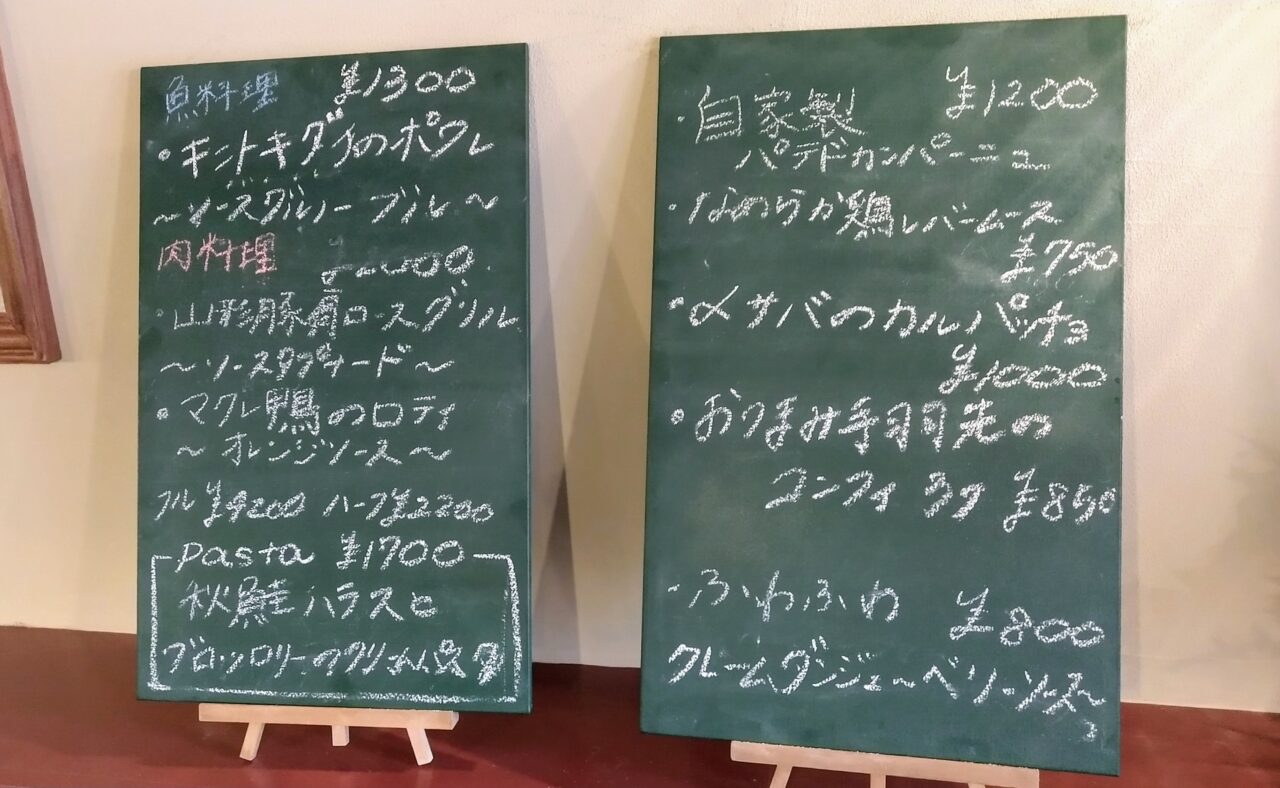 魚料理 ¥1300
・キントキダイのポワレ
~ソースグルノーブル~
肉料理
・山形豚肩ロースグリル
~ソースタプナード~
・マグレ鴨のロティ
~オレンジソース~
フル ¥4200 ハーフ¥2200
pasta ¥1700
秋鮭ハラスと
ブロッコリーのクリームパスタ
¥1200
・自家製
パテドカンパーニュ
・なめらか鶏レバームース
¥750
・〆サバのカルパッチョ
¥1000
・おつまみ手羽先の
コンフィ ¥850
・ふわふわ ¥800
クレームダンジュ~ベリーソース~